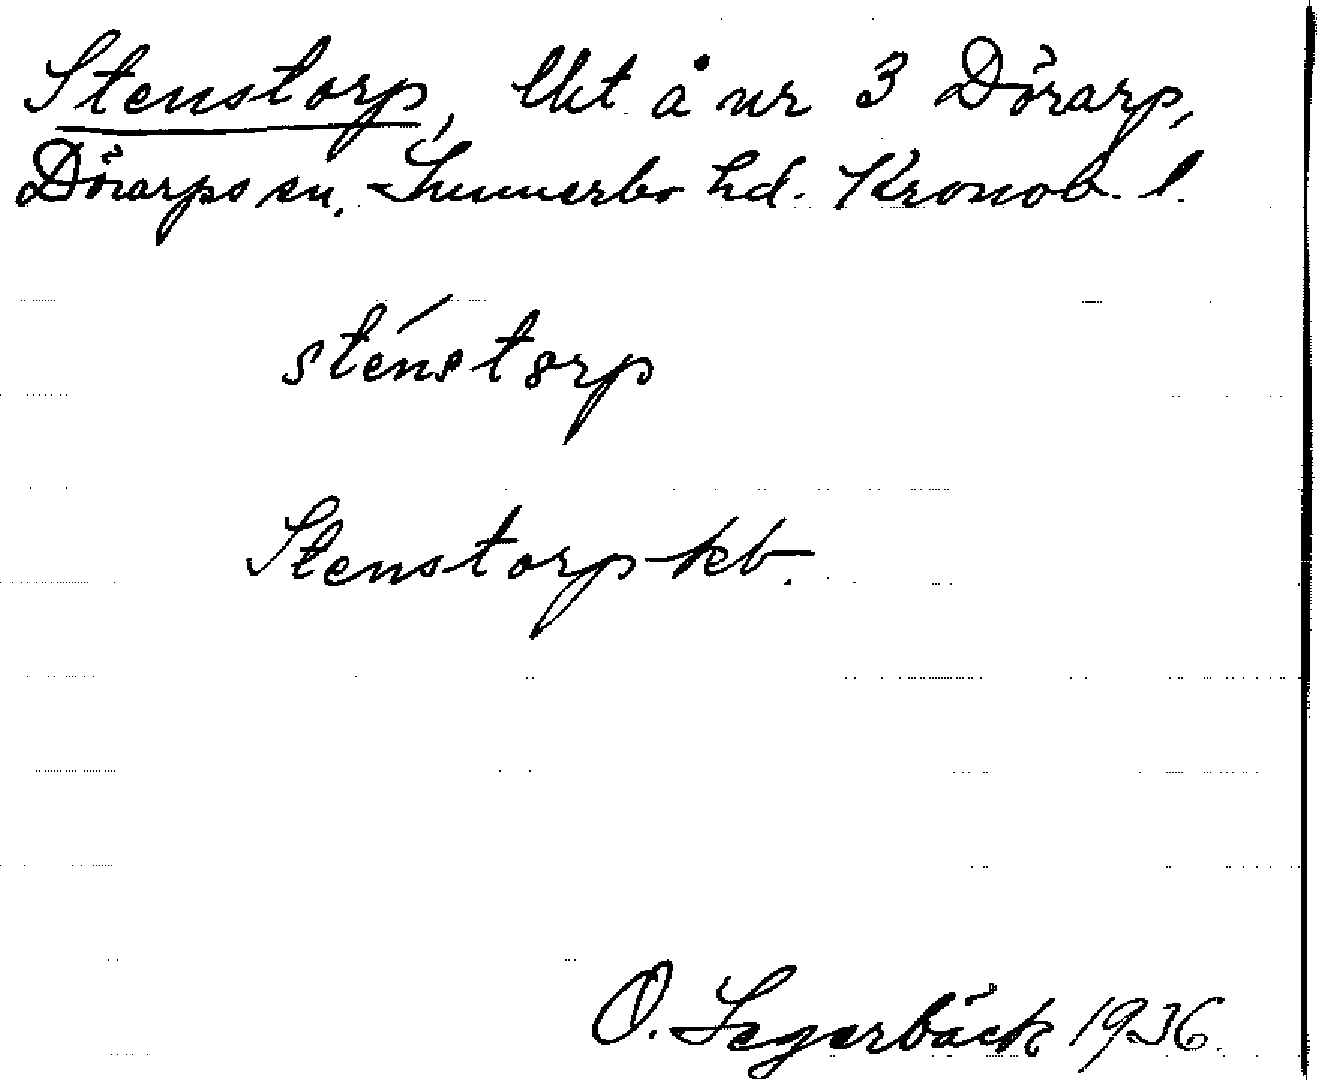 Stenstorp, lht å nr 3 Dörarp,
Dörarps sn. Sunnerbo hd. Kronob. l.
sténstorp
Stenstorp kb.
O. Segerbäck 1936.